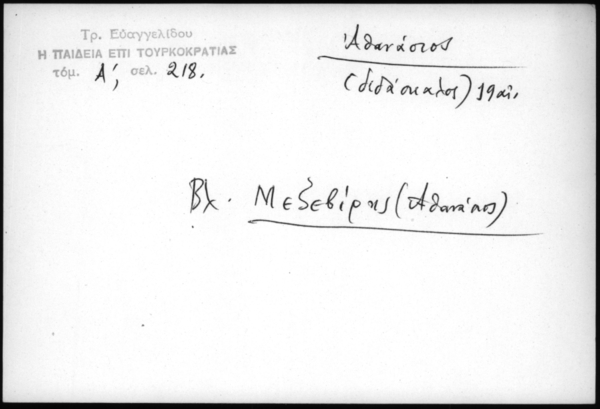 Τρ. Εὐαγγελίδου
Η ΠΑΙΔΕΙΑ ΕΠΙ ΤΟΥΡΚΟΚΡΑΤΙΑΣ
τόμ. Α΄, σελ. 218.
Ἀθανάσιος
(διδάσκαλος) 19 αἰ.
Βλ. Μεζεβίρης (Ἀθανάσιος)